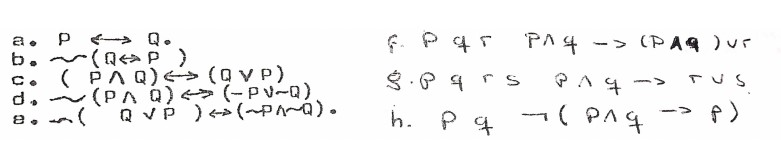 a. P ⟷ Q.
b. ~(Q⟷P )
c. ( P∧Q)⟷(Q∨P)
d. ~(P∧ Q)⟷(-P∨~Q)
e. ~( Q∨P )⟷(~P∧~Q).
f. P q r P∧q -> (P∧q)∨r
g. P q r s P∧q -> r∨s
h. P q ¬(P∧q -> P)